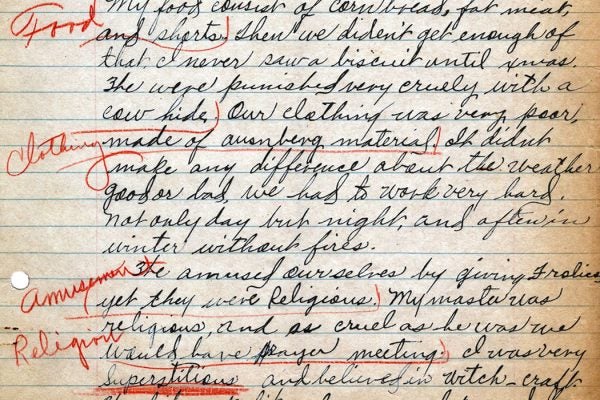 My food consist of cornbread, fat meat,
Food
and shorts. Then we dident get enough of
that I never saw a biscuit until xmas.
The were punished very cruely with a
cow hide) Our clothing was very poor,
Clothing
made of ausnberg material) It didnt
make any difference about the weather
good or bad, we had to work very hard.
not only day but night, and often in
winter without fires.
We amused ourselves by giving Frolics,
Amusement
yet they were Religious.) My master was
religious, and as cruel as he was we
Religion
would have prayer meeting.) I was very
Superstitious and believed in witch-craft